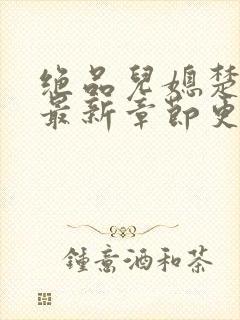 绝品兒媳楚
最新章節史
鍾意酒和茶